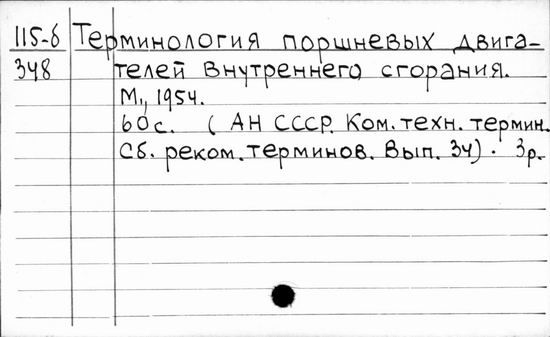 115-б Терминология поршневых двига-
348 телей внутреннего сгорания.
М., 1954.
60 с. (АН СССР. Ком. техн. термин.
Сб. реком. терминов. Вып. 34). 3р.